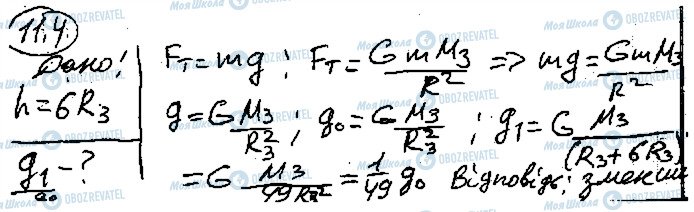 11.4
Дано:
h=6R₃
g₁/g₀ - ?
Fт=mg; Fт=GmM₃/R² => mg=GmM₃/R²
g=G M₃/R₃²; g₀=G M₃/R₃²; g₁=G M₃/(R₃+6R₃)
=G M₃/49R₃²=1/49 g₀ Відповідь: зменши